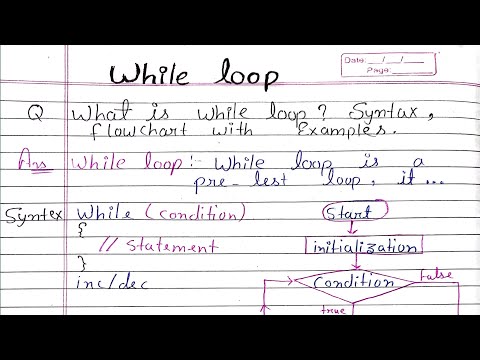 Date: __/__/__
Page:
While loop
Q What is while loop? Syntax,
flowchart with Examples.
Ans While loop:- While loop is a
pre-test loop, it...
Syntex While (condition)
{
// Statement
}
inc/dec
Start
initialization
Condition
false
true